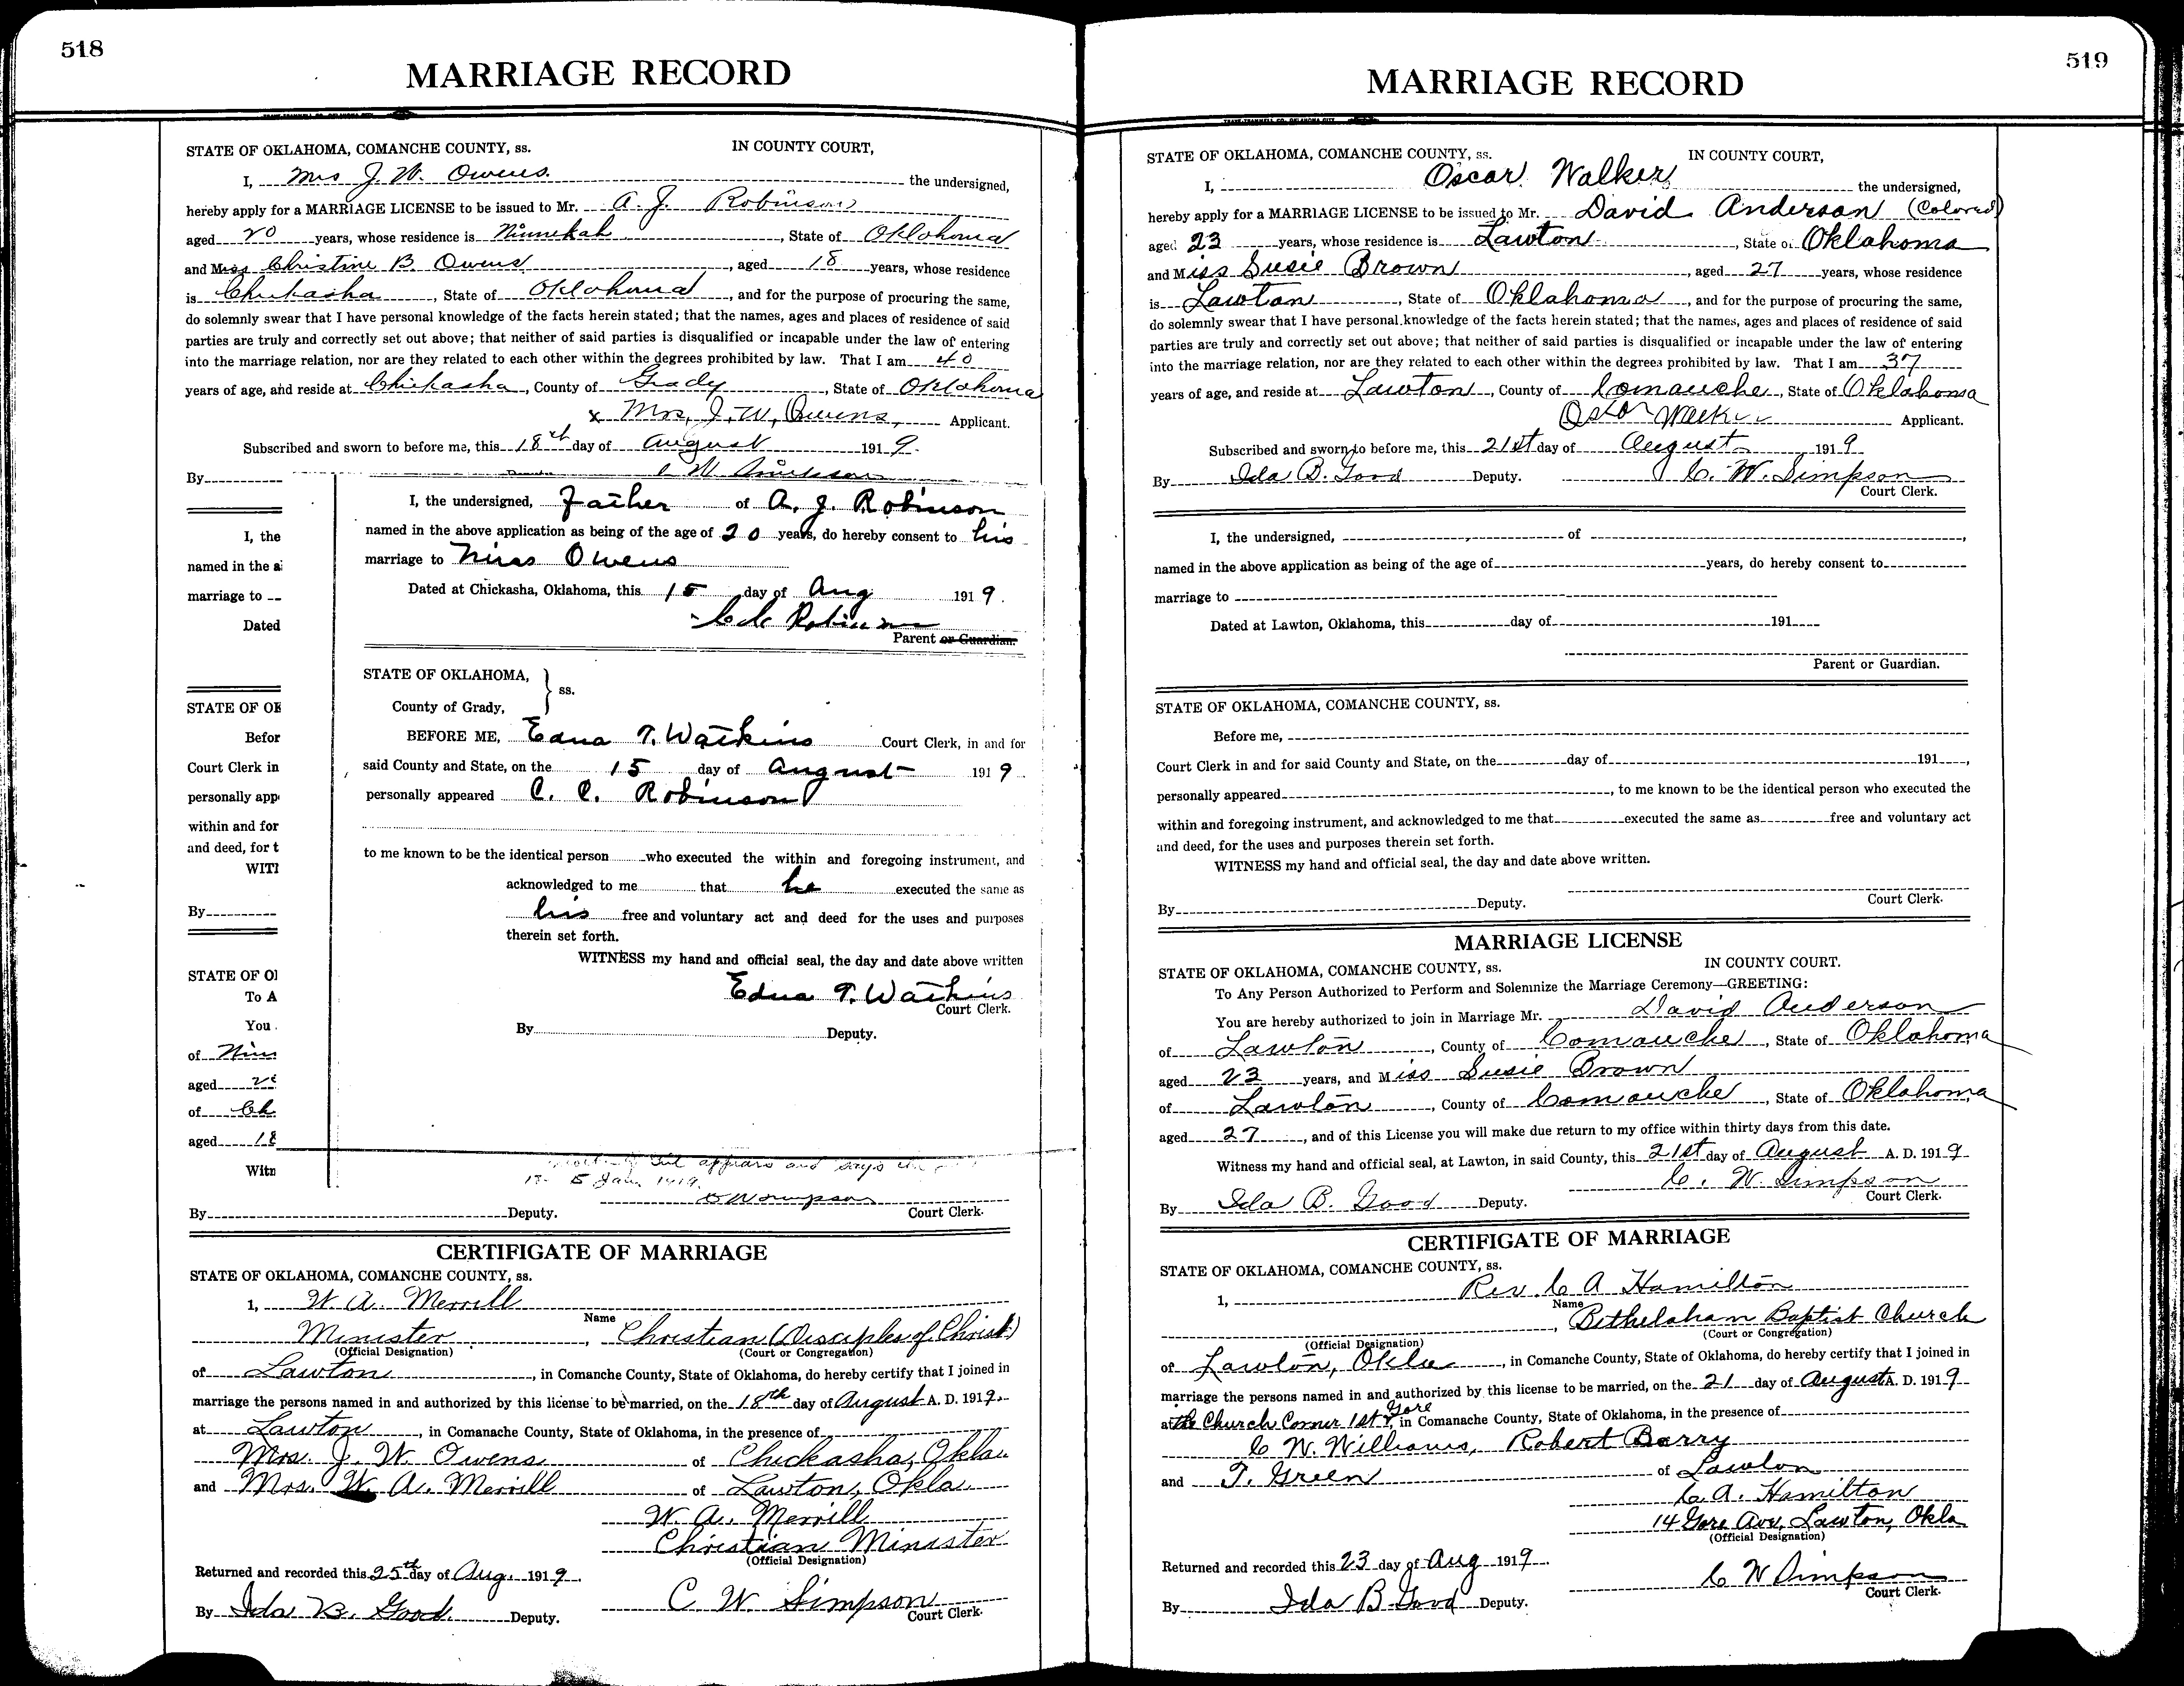 518
MARRIAGE RECORD
STATE OF OKLAHOMA, COMANCHE COUNTY, ss. IN COUNTY COURT,
I, Mrs J. W. Owens. the undersigned,
hereby apply for a MARRIAGE LICENSE to be issued to Mr. A. J. Robinson
aged 20 years, whose residence is Ninnekah, State of Oklahoma
and Miss Christine B. Owens, aged 18 years, whose residence
is Chickasha, State of Oklahoma, and for the purpose of procuring the same,
do solemnly swear that I have personal knowledge of the facts herein stated; that the names, ages and places of residence of said
parties are truly and correctly set out above; that neither of said parties is disqualified or incapable under the law of entering
into the marriage relation, nor are they related to each other within the degrees prohibited by law. That I am 40
years of age, and reside at Chickasha, County of Grady, State of Oklahoma
x Mrs, J. W, Owens, Applicant.
Subscribed and sworn to before me, this 18th day of August 1919.
By
I, the
named in the a
marriage to
Dated
STATE OF OK
Befor
Court Clerk in
personally app
within and for
and deed, for t
WIT
By
STATE OF O
To A
You
of Nin
aged 20
of Ch
aged 18
Witn
I, the undersigned, Father of A. J. Robinson
named in the above application as being of the age of 20 years, do hereby consent to his
marriage to Miss Owens
Dated at Chickasha, Oklahoma, this 15 day of Aug 1919.
C. C. Robinson
Parent or Guardian.
STATE OF OKLAHOMA, } ss.
County of Grady,
BEFORE ME, Edna T. Watkins Court Clerk, in and for
said County and State, on the 15 day of August 1919
personally appeared C. C. Robinson
to me known to be the identical person who executed the within and foregoing instrument, and
acknowledged to me that he executed the same as
his free and voluntary act and deed for the uses and purposes
therein set forth.
WITNESS my hand and official seal, the day and date above written
Edna T. Watkins
Court Clerk.
By Deputy.
appears and says
Jan. 1919.
By Deputy. Court Clerk.
CERTIFICATE OF MARRIAGE
STATE OF OKLAHOMA, COMANCHE COUNTY, ss.
1, W. A. Merrill
Name
Minister, Christian (Disciples of Christ)
(Official Designation) (Court or Congregation)
of Lawton, in Comanche County, State of Oklahoma, do hereby certify that I joined in
marriage the persons named in and authorized by this license to be married, on the 18th day of August A. D. 1919.
at Lawton, in Comanache County, State of Oklahoma, in the presence of
Mrs. J. W. Owens of Chickasha, Okla.
and Mrs. W. A. Merrill of Lawton, Okla.
W. A. Merrill
Christian Minister
(Official Designation)
Returned and recorded this 25th day of Aug. 1919.
C. W. Simpson
By Ida B. Good Deputy. Court Clerk.
519
MARRIAGE RECORD
STATE OF OKLAHOMA, COMANCHE COUNTY, ss. IN COUNTY COURT,
I, Oscar Walker the undersigned,
hereby apply for a MARRIAGE LICENSE to be issued to Mr. David Anderson (Colored)
aged 23 years, whose residence is Lawton, State of Oklahoma
and Miss Susie Brown, aged 27 years, whose residence
is Lawton, State of Oklahoma, and for the purpose of procuring the same,
do solemnly swear that I have personal knowledge of the facts herein stated; that the names, ages and places of residence of said
parties are truly and correctly set out above; that neither of said parties is disqualified or incapable under the law of entering
into the marriage relation, nor are they related to each other within the degrees prohibited by law. That I am 37
years of age, and reside at Lawton, County of Comanche, State of Oklahoma
Oscar Walker Applicant.
Subscribed and sworn to before me, this 21st day of August 1919
By Ida B. Good Deputy. C. W. Simpson
Court Clerk.
I, the undersigned, of ,
named in the above application as being of the age of years, do hereby consent to
marriage to
Dated at Lawton, Oklahoma, this day of 191
Parent or Guardian.
STATE OF OKLAHOMA, COMANCHE COUNTY, ss.
Before me,
Court Clerk in and for said County and State, on the day of 191 ,
personally appeared , to me known to be the identical person who executed the
within and foregoing instrument, and acknowledged to me that executed the same as free and voluntary act
and deed, for the uses and purposes therein set forth.
WITNESS my hand and official seal, the day and date above written.
By Deputy. Court Clerk.
MARRIAGE LICENSE
STATE OF OKLAHOMA, COMANCHE COUNTY, ss. IN COUNTY COURT.
To Any Person Authorized to Perform and Solemnize the Marriage Ceremony—GREETING:
You are hereby authorized to join in Marriage Mr. David Anderson
of Lawton, County of Comanche, State of Oklahoma
aged 23 years, and Miss Susie Brown
of Lawton, County of Comanche, State of Oklahoma
aged 27, and of this License you will make due return to my office within thirty days from this date.
Witness my hand and official seal, at Lawton, in said County, this 21st day of August A. D. 1919
C. W. Simpson
By Ida B. Good Deputy. Court Clerk.
CERTIFICATE OF MARRIAGE
STATE OF OKLAHOMA, COMANCHE COUNTY, ss.
1, Rev. C A Hamilton
Name
, Bethelaham Baptist Church
(Official Designation) (Court or Congregation)
of Lawton, Okla, in Comanche County, State of Oklahoma, do hereby certify that I joined in
marriage the persons named in and authorized by this license to be married, on the 21 day of August A. D. 1919
at the Church Corner 1st & Gore, in Comanache County, State of Oklahoma, in the presence of
C W. Williams, Robert Barry
and T. Green of Lawton
C. A. Hamilton
14 Gore Ave, Lawton, Okla
(Official Designation)
Returned and recorded this 23 day of Aug 1919.
C W Simpson
By Ida B Good Deputy. Court Clerk.